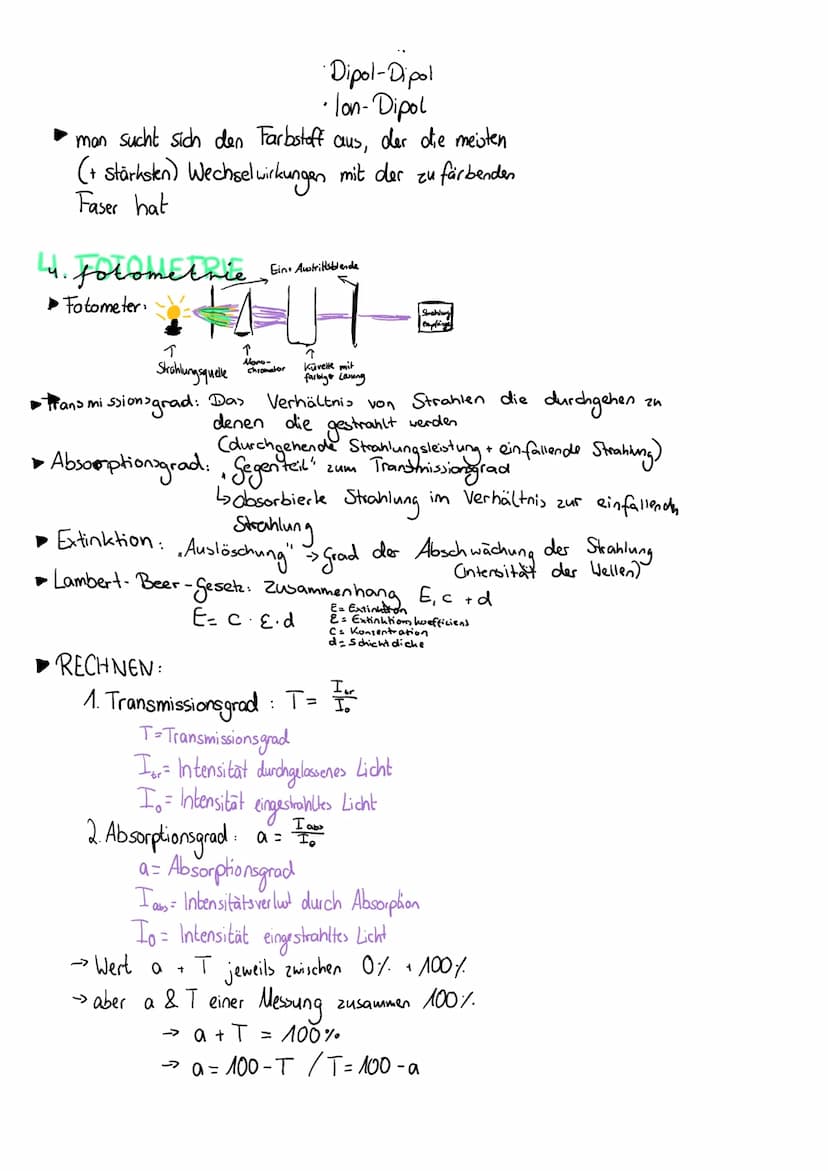 · Dipol-Dipol
· Ion-Dipol
▶ man sucht sich den Farbstoff aus, der die meisten
(+ stärksten) Wechselwirkungen mit der zu färbenden
Faser hat
4. FOTOMETRIE
4. fotometrie
Ein+ Austrittsblende
▶ Fotometer:
Strahlungs
empfänger
Strahlungsquelle
Mono-
chromator
Küvette mit
farbiger Lösung
▶ Transmissionsgrad: Das Verhältnis von Strahlen die durchgehen zu
denen die gestrahlt werden
(durchgehende Strahlungsleistung + einfallende Strahlung)
▶ Absoorptionsgrad: "Gegenteil" zum Transmissiongrad
↳ absorbierte Strahlung im Verhältnis zur einfallenden
Strahlung
▶ Extinktion: „Auslöschung" → Grad der Abschwächung der Strahlung
(Intensität der Wellen)
▶ Lambert-Beer-Gesetz: Zusammenhang E, c + d
E = c · ε · d
E = Extinktion
ε = Extinktionskoeffizient
c = Konzentration
d = Schichtdicke
▶ RECHNEN:
1. Transmissionsgrad: T = Itr/I₀
T = Transmissionsgrad
Itr = Intensität durchgelassenes Licht
I₀ = Intensität eingestrahltes Licht
2. Absorptionsgrad: a = Iabs/I₀
a = Absorptionsgrad
Iabs = Intensitätsverlust durch Absorption
I₀ = Intensität eingestrahltes Licht
→ Wert a + T jeweils zwischen 0% + 100%
→ aber a & T einer Messung zusammen 100%.
→ a + T = 100%
→ a = 100 - T / T = 100 - a